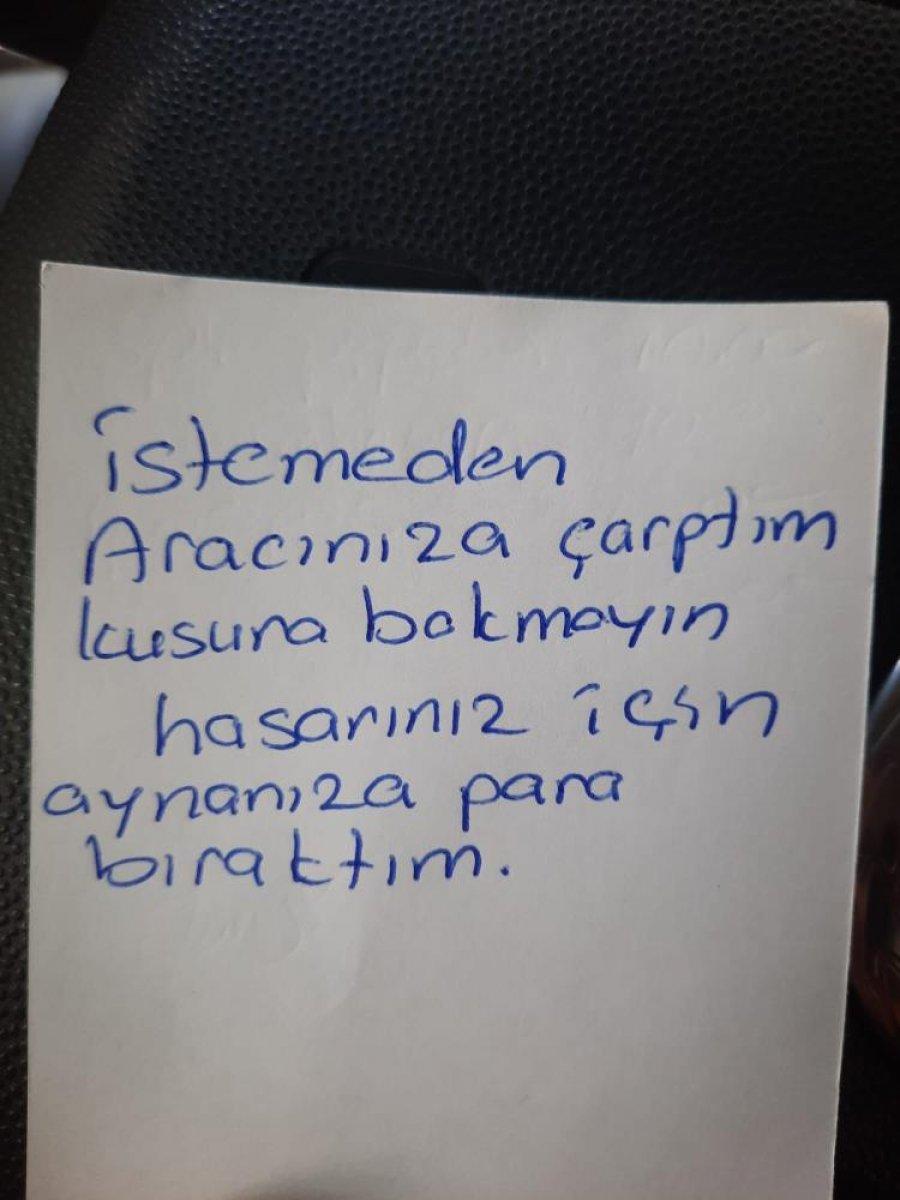 İstemeden
Aracınıza çarptım
kusura bakmayın
hasarınız için
aynanıza para
bıraktım.